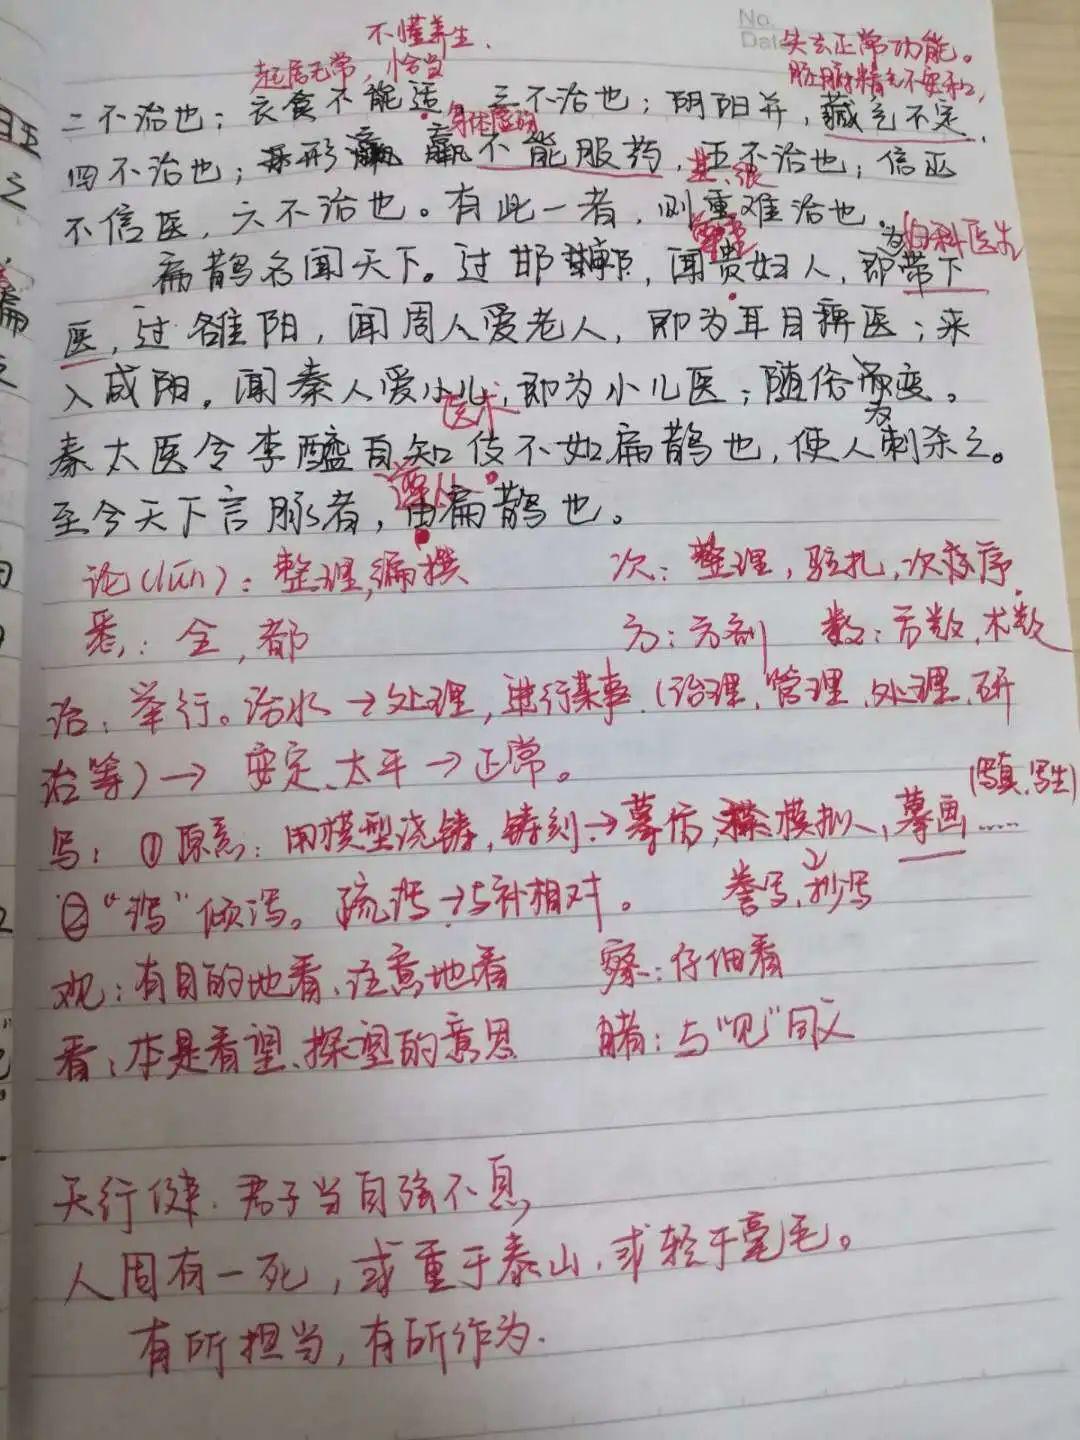 No.
Date
不懂养生.
起居无常，恰当
失去正常功能。
脏腑精气不安和，
二不治也；衣食不能适，三不治也；阴阳并，藏气不定，
身体羸弱
四不治也；形羸不能服药，五不治也；信巫
甚、很
不信医，六不治也。有此一者，则重难治也。
尊重
为
妇科医生
扁鹊名闻天下。过邯郸，闻贵妇人，即带下
医，过雒阳，闻周人爱老人，即为耳目痹医；来
入咸阳，闻秦人爱小儿，即为小儿医；随俗而变。
医术
为
秦太医令李醯自知伎不如扁鹊也，使人刺杀之。
遵从
至今天下言脉者，由扁鹊也。
论(lún)：整理,编撰 次：整理，驻扎，次序
悉：全，都 方：方剂 数：方数，术数
治：举行。治水→处理，进行某事（治理、管理、处理、研
治等）→ 安定、太平→正常。
(写真、写生)
写：①原意：用模型浇铸，铸刻→摹仿，模拟，摹画……
②“泻”倾泻。疏泻→与补相对。 誊写、抄写
观：有目的地看、注意地看 察：仔细看
看：本是看望、探望的意思 睹：与“见”同义
天行健，君子当自强不息
人固有一死，或重于泰山，或轻于毫毛。
有所担当，有所作为.